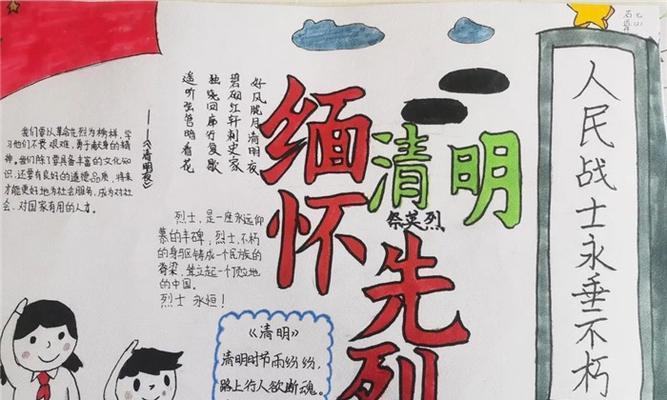 缅怀先烈
清明
祭英烈
人民战士永垂不朽
好风胧月清明夜
碧砌红轩刺史家
独绕回廊行复歇
遥听弦管暗看花
——《清明夜》
我们要以革命先烈为榜样，学
习他们不畏艰难，勇于献身的精
神。我们除了要具备丰富的文化知
识，还要有良好的道德品质，将来
才能更好地为社会服务，成为对社
会、对国家有用的人才。
烈士，是一座永远仰
慕的丰碑；烈士，不朽
的身躯铸成一个民族的
脊梁，耸立起一个顶立地
的中国。
烈士 永恒！
《清明》
清明时节雨纷纷，
路上行人欲断魂。